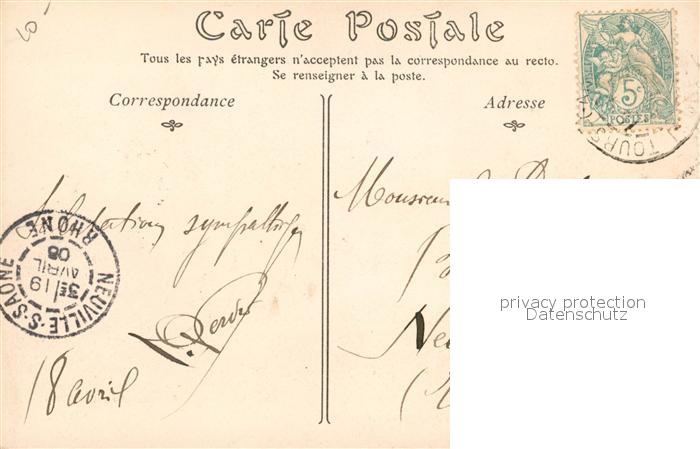 Carte Postale
Tous les pays étrangers n'acceptent pas la correspondance au recto.
Se renseigner à la poste.
Correspondance
Adresse
5c
POSTES
TOURS
Salutations sympathiques
18 avril
NEUVILLE-S-SAONE
RHONE
3E/19
AVRIL
08
Monsieur
privacy protection
Datenschutz